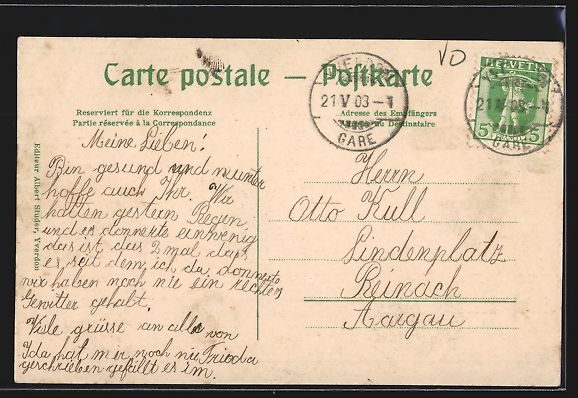 VD
Carte postale — Postkarte
HELVETIA
5 5
FRANCO
21 V 03 - 1
GARE
21 V 03 - 1
GARE
Reserviert für die Korrespondenz
Partie réservée à la Correspondance
Adresse des Empfängers
du Destinataire
Editeur Albert Studer, Yverdon
Meine Lieben!
Bin gesund und munter
hoffe auch Ihr. Wir
hatten gestern Regen
und es donnerte einwenig
das ist das 2 mal das
es seit dem ich da donnerte
wir haben noch nie ein rechtes
Gewitter gehabt.
Viele grüsse an alle von
Frieda
Ida hat mer noch nie
geschrieben gefällt es im.
Herrn
Otto Kull
Lindenplatz
Reinach
Aargau